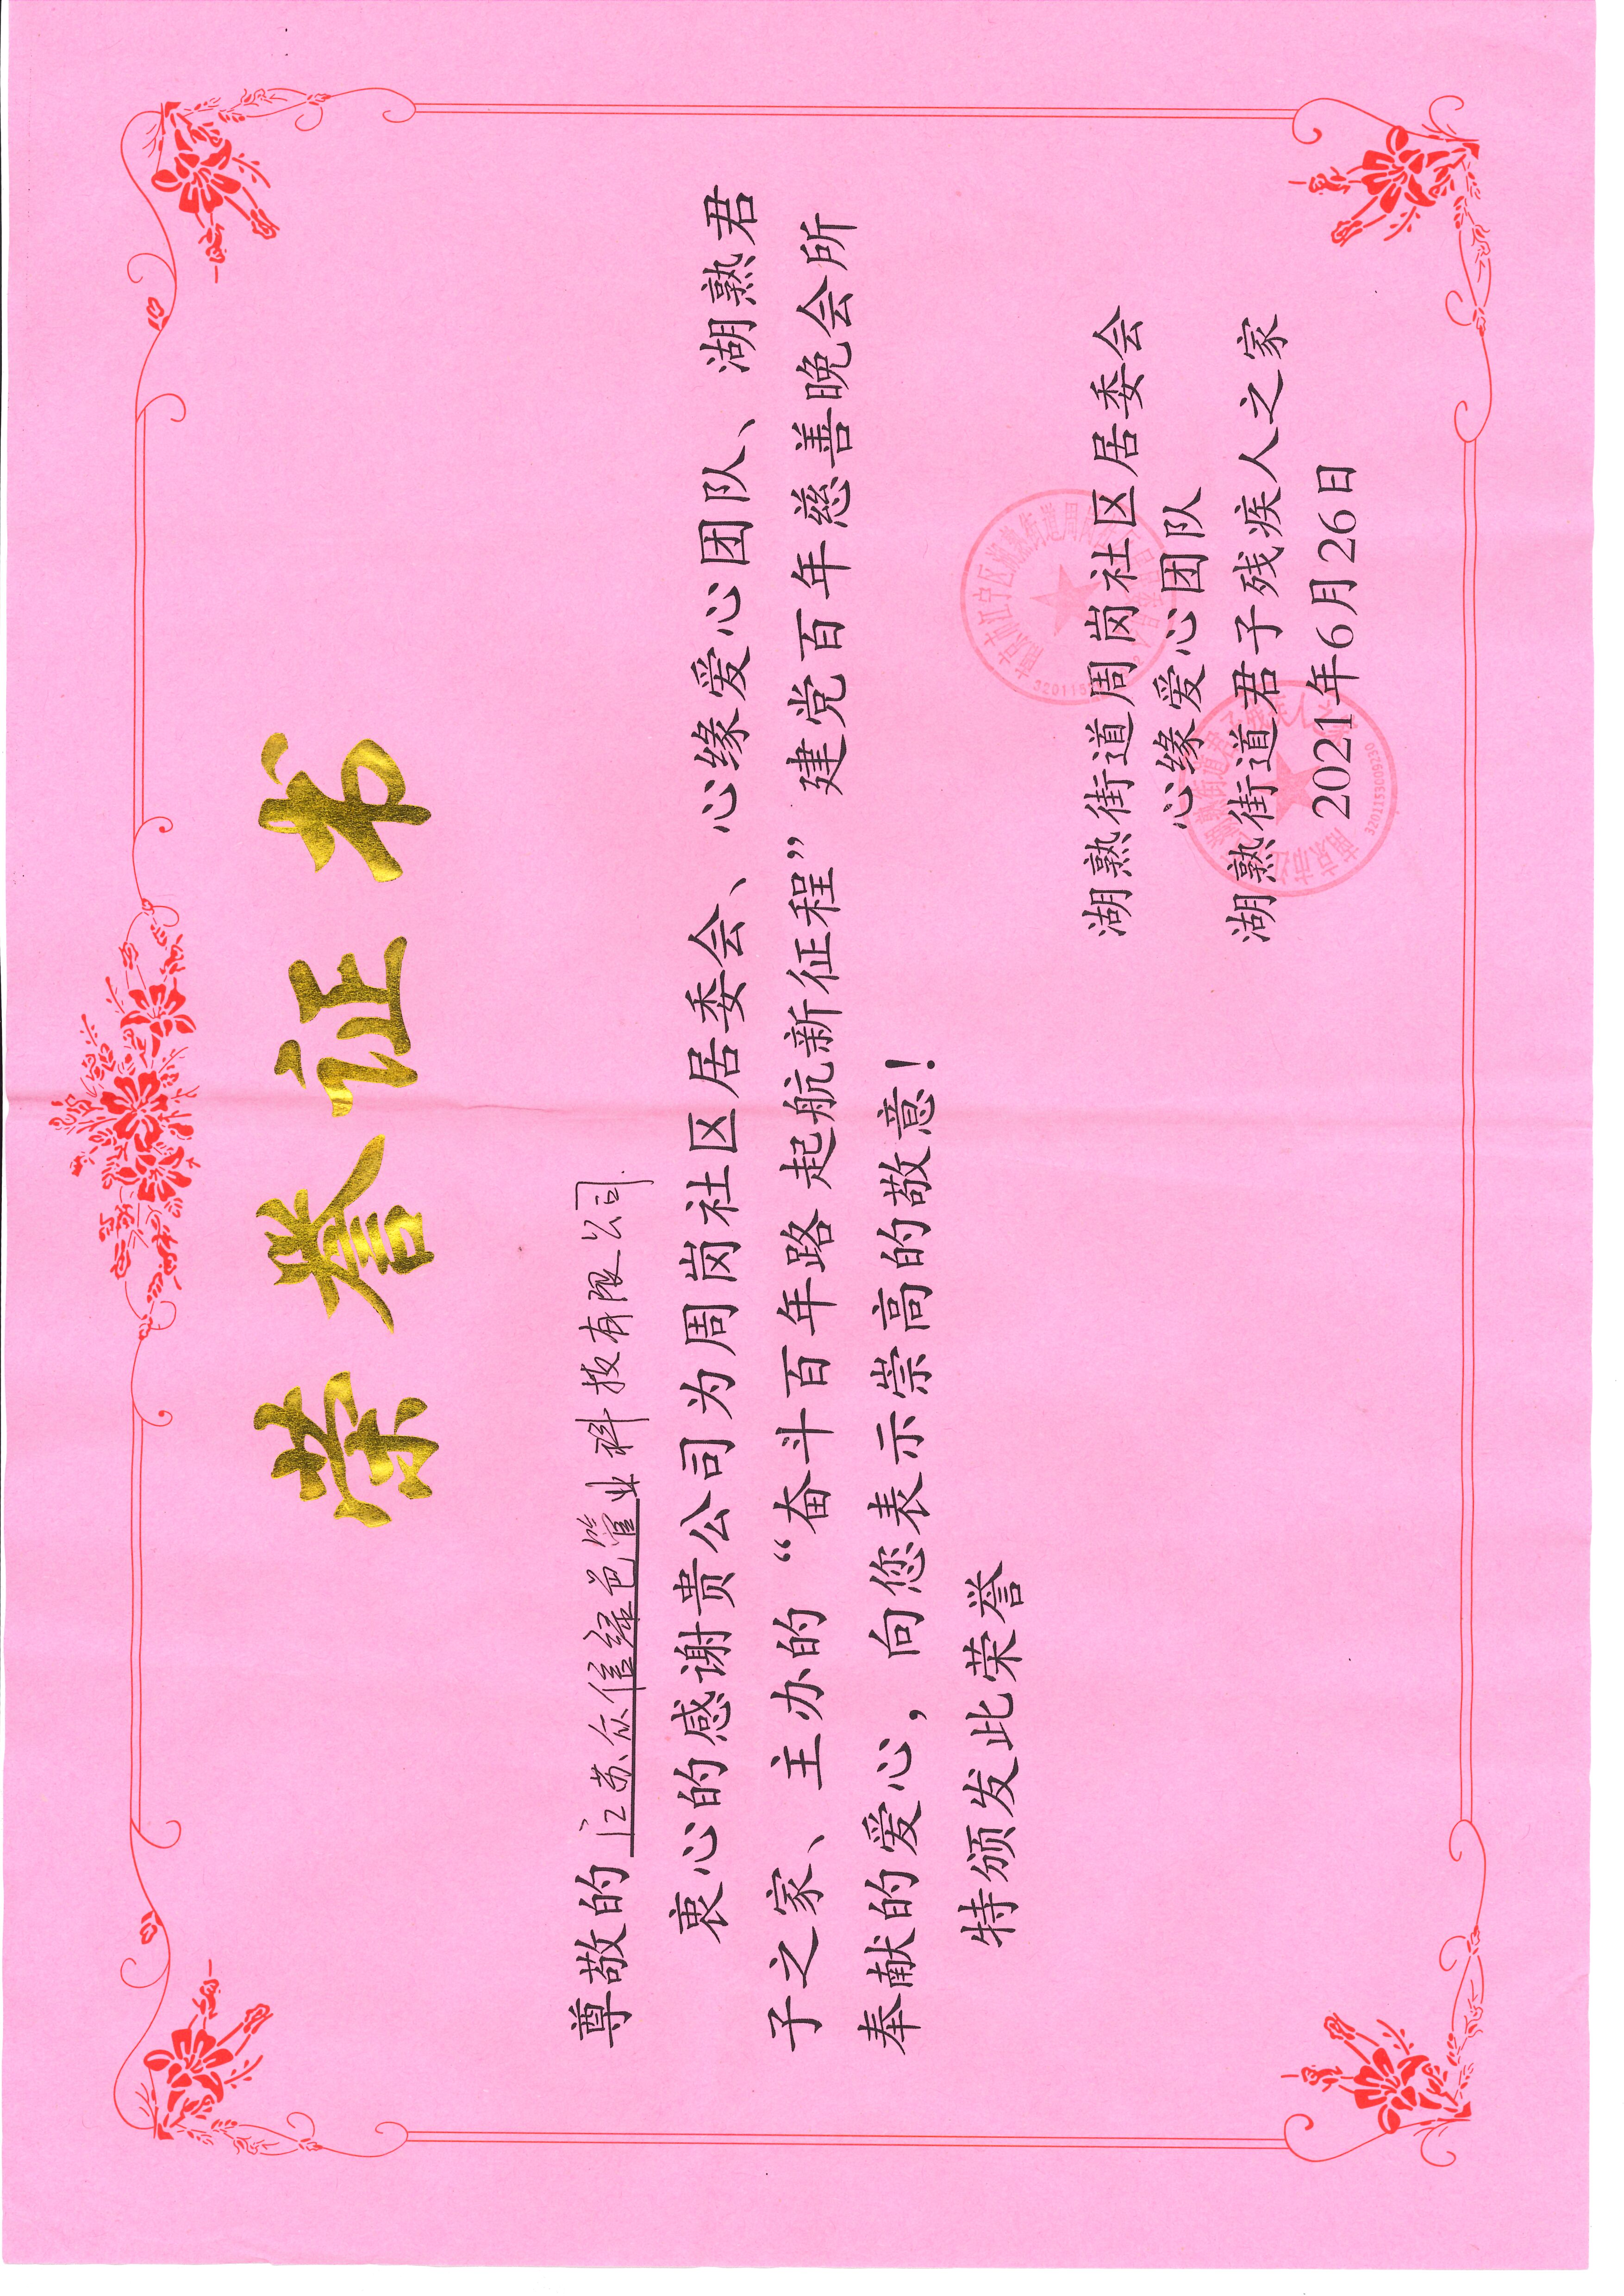 荣誉证书
尊敬的江苏众信绿色管业科技有限公司
衷心的感谢贵公司为周岗社区居委会、心缘爱心团队、湖熟君
子之家、主办的“奋斗百年路 起航新征程”建党百年慈善晚会所
奉献的爱心，向您表示崇高的敬意！
特颁发此荣誉
南京市江宁区湖熟街道周
湖熟街道周岗社区居委会
心缘爱心团队
湖熟街道君子残疾人之家
2021年6月26日
南京市江 湖熟街道君子残疾人之家
3201153009230